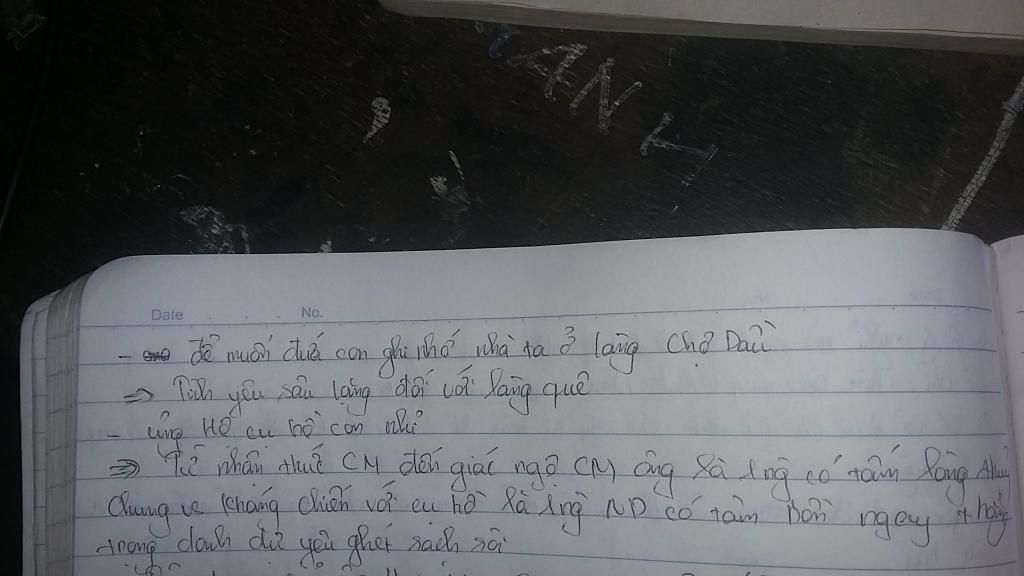 ANH
Date No.
- để muốn đứa con ghi nhớ nhà ta ở làng Chợ Dầu
=> Tình yêu sâu lặng đối với làng quê
- ủng Hộ cụ hồ con nhỉ
=> Từ nhận thức CM đến giác ngộ CM ông là 1 ng có tấm lòng thuỷ
Chung vs kháng chiến với cụ hồ là 1 ng ND có tâm hồn ngay thẳng
trong danh dự yêu ghét rạch ròi